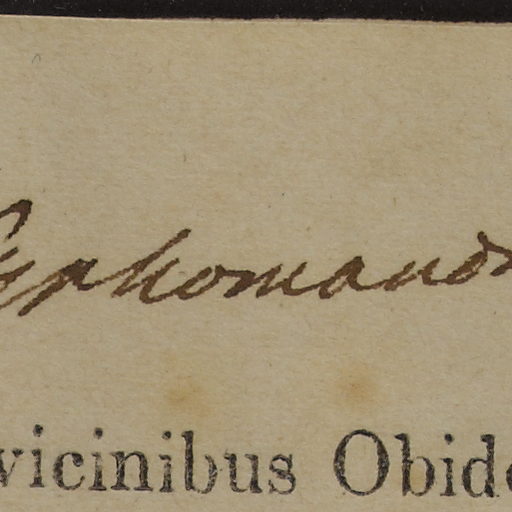 Cyphomand
vicinibus Obido